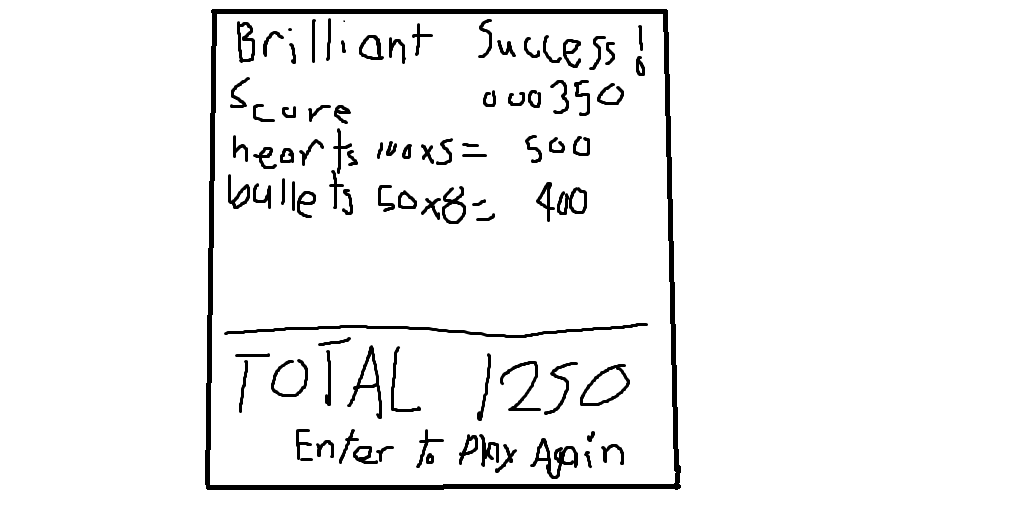 Brilliant Success!
Score 000350
hearts 100x5= 500
bullets 50x8= 400
TOTAL 1250
Enter to Play Again